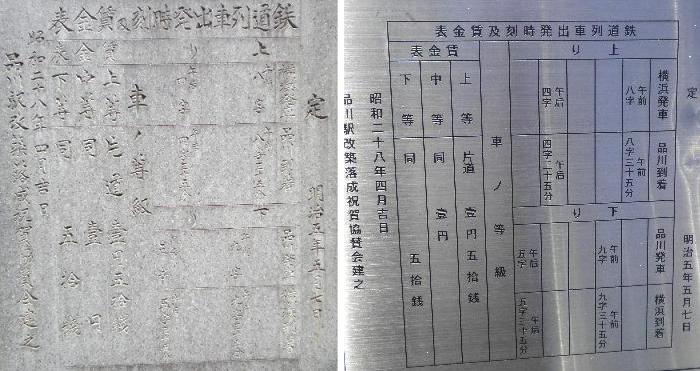 鉄道列車出発時刻及賃金表
定
明治五年五月七日
上
り
車ノ等級
賃金表
上等片道壹円五拾銭
中等同壹円
下等同五拾銭
昭和二十八年四月吉日
品川駅改築落成祝賀協賛会建之
定
明治五年五月七日
鉄道列車出発時刻及賃金表
上り
横浜発車
午前八字
午后四字
品川到着
午前八字三十五分
午后四字三十五分
下り
品川発車
午前九字
午后五字
横浜到着
午前九字三十五分
午后五字三十五分
車ノ等級
賃金表
上等片道壹円五拾銭
中等同壹円
下等同五拾銭
昭和二十八年四月吉日
品川駅改築落成祝賀協賛会建之